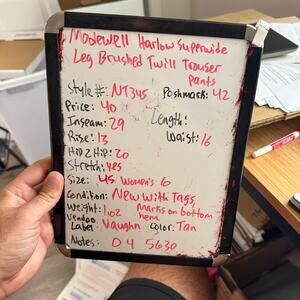 Madewell Harlow Superwide
Leg Brushed Twill Trouser
Pants
Style#: NT345 Poshmark: 42
Price: 40
Inseam: 29 Length:
Rise: 13 Waist: 16
Hip 2 Hip: 20
Stretch: yes
Size: 45 Women's 6
Condition: New with Tags,
Weight: 1 oz Marks on bottom
hem
Vendoo
Label: Vaughn Color: Tan
Notes: D4 5630